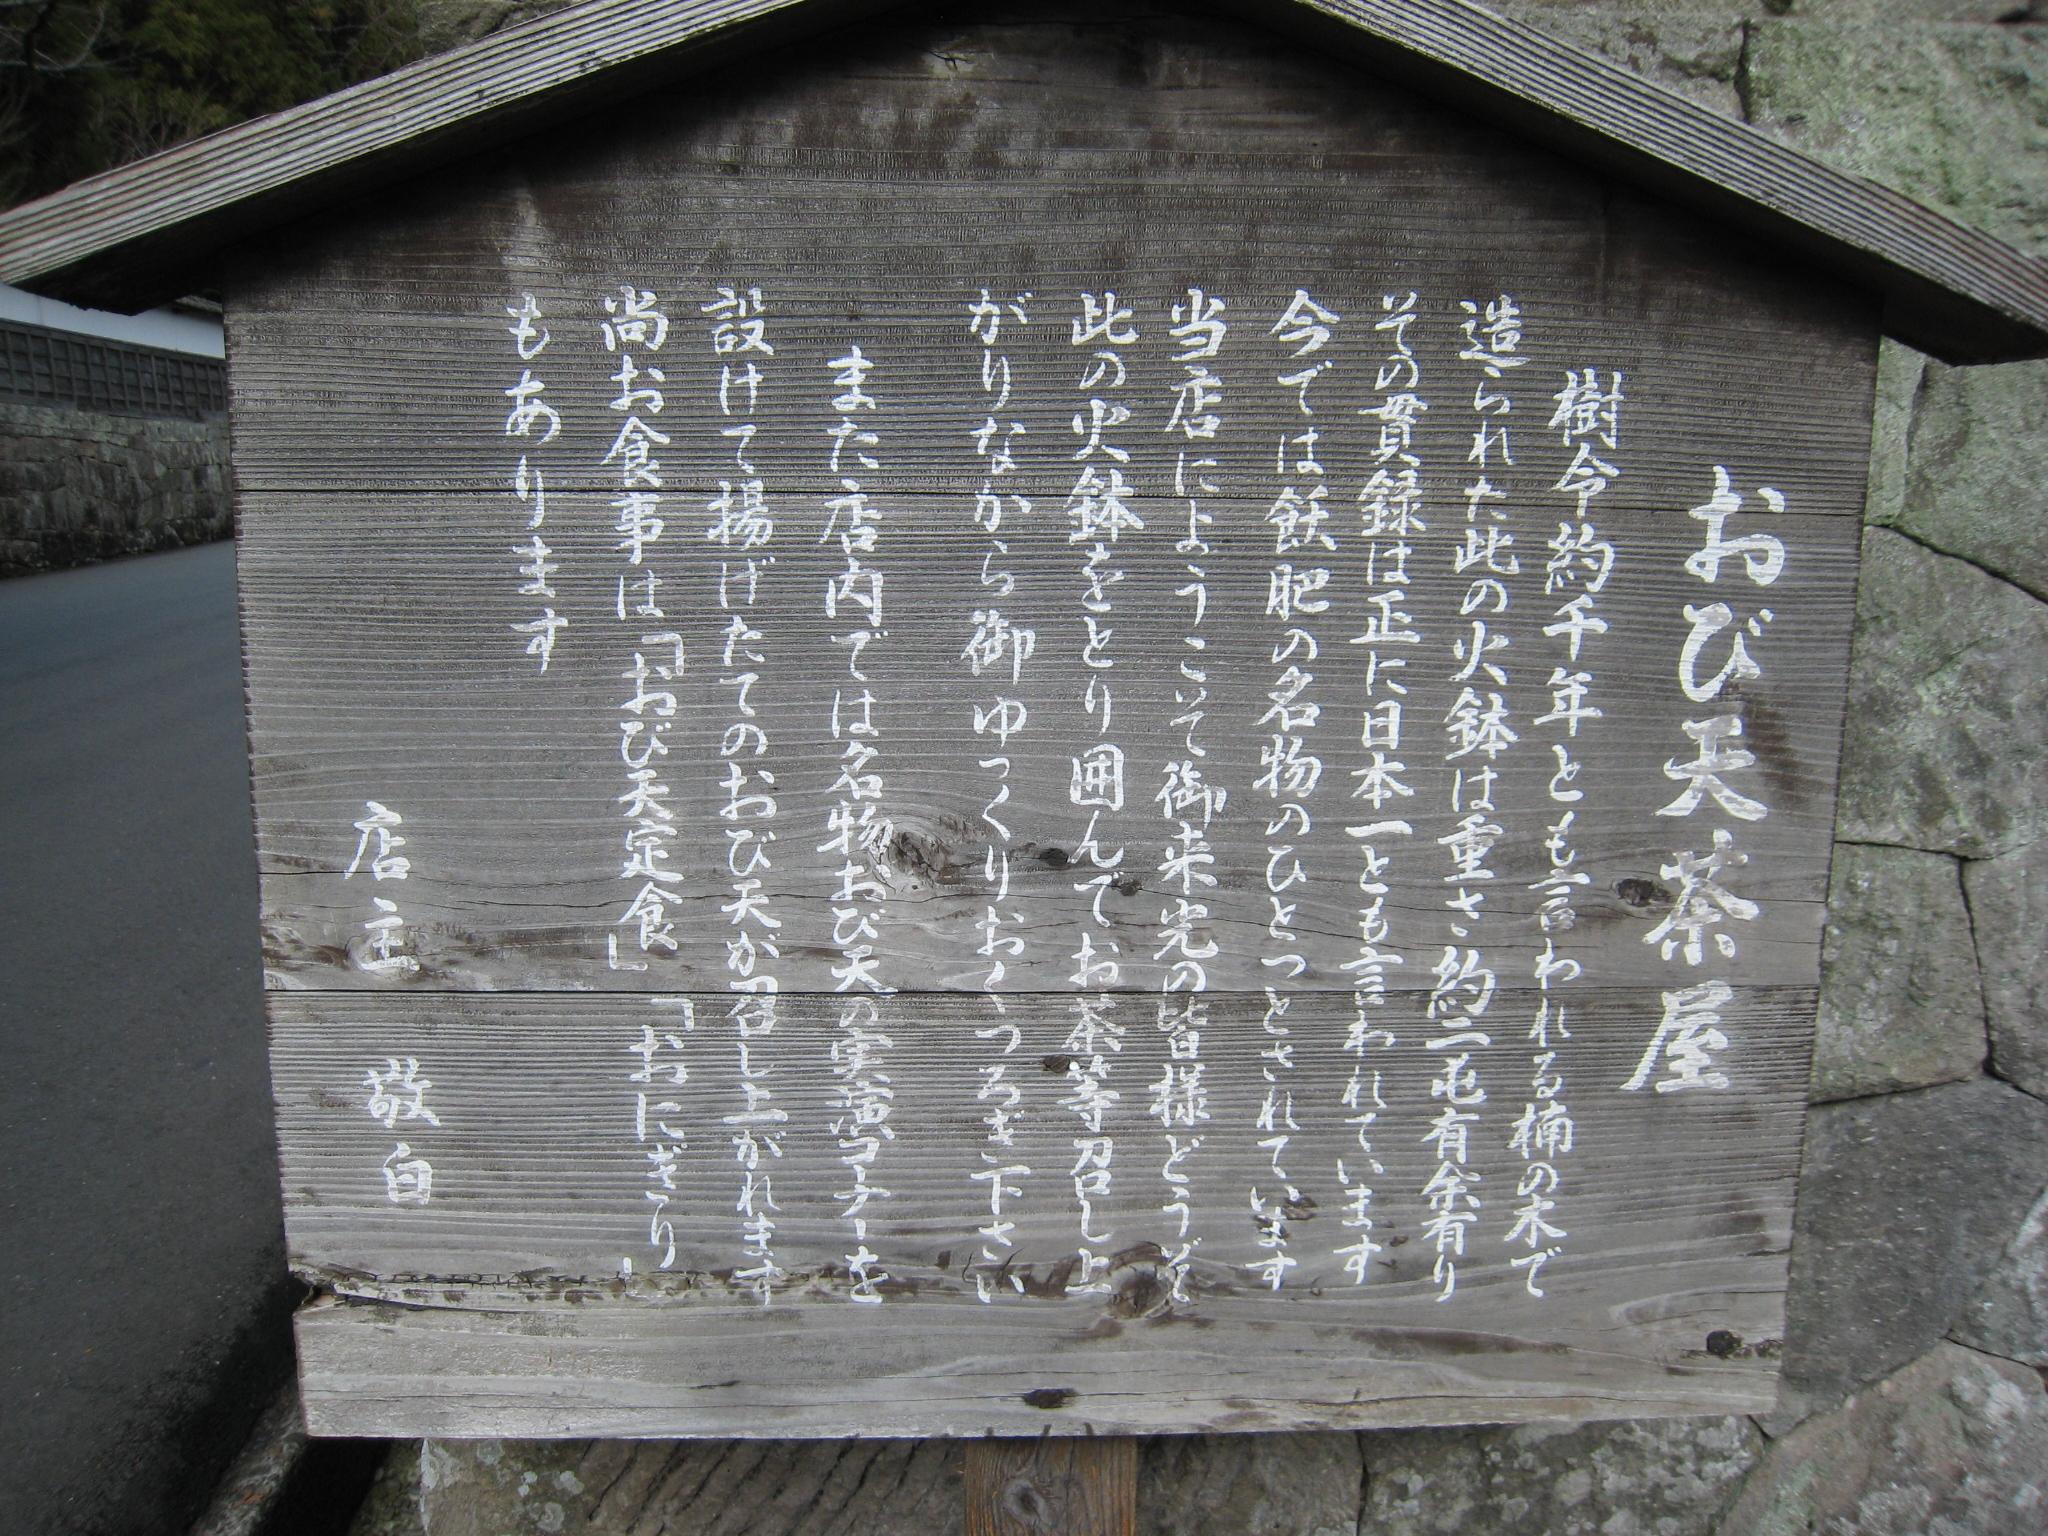 おび天茶屋
樹令約千年とも言われる楠の木で
造られた此の火鉢は重さ約二屯有余有り
その貫録は正に日本一とも言われています
今では飫肥の名物のひとつとされています
当店にようこそ御来光の皆様どうぞ
此の火鉢をとり囲んでお茶等召し上
がりなから御ゆっくりおくつろぎ下さい
また店内では名物おび天の実演コーナーを
設けて揚げたてのおび天が召し上がれます
尚お食事は「おび天定食」「おにぎり」
もあります
店主 敬白